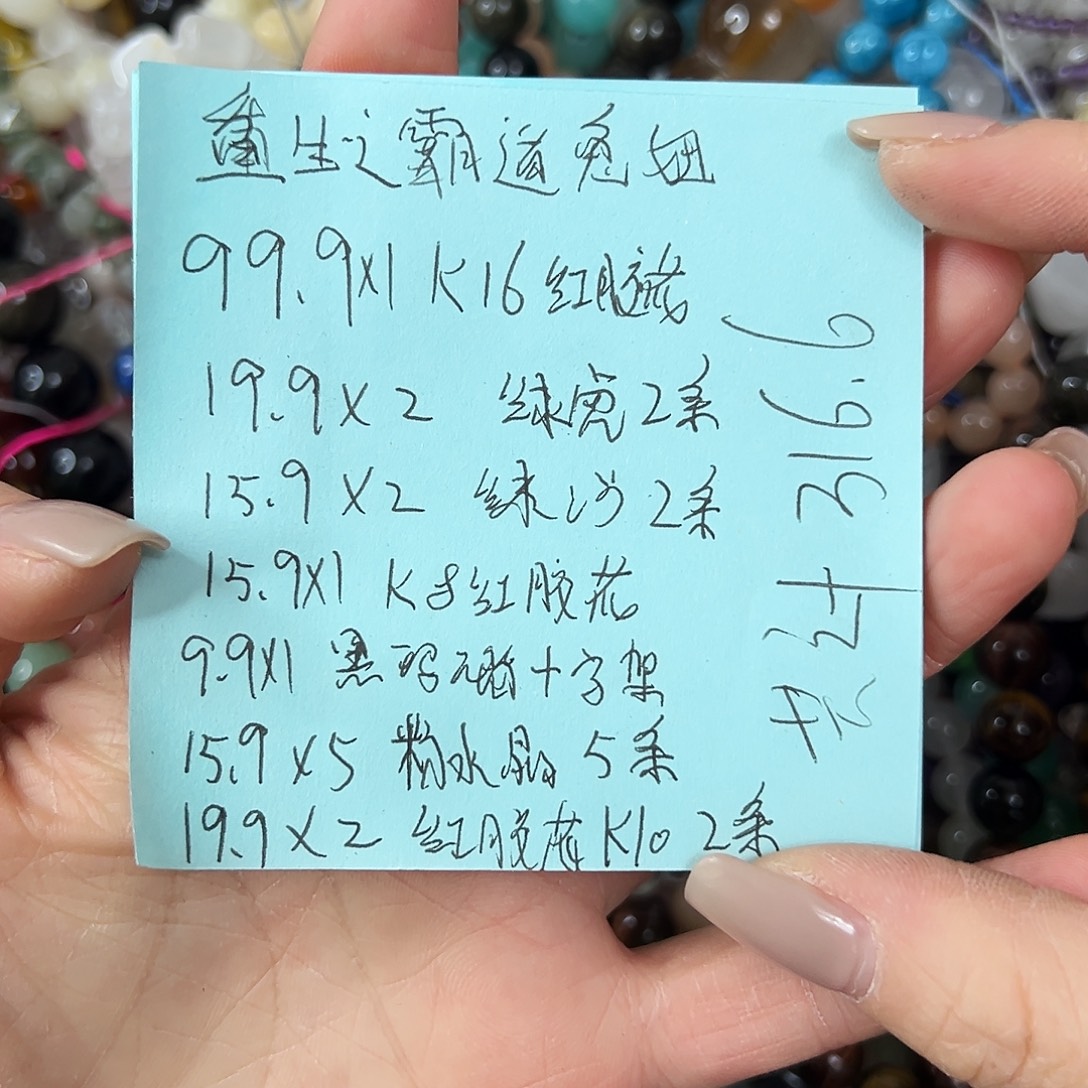 重生之霸道兔妞
99.9x1 K16 红胶花
19.9x2 绿虎2条
15.9x2 绿沙2条
15.9x1 K8红胶花
9.9x1 黑玛瑙十字架
15.9x5 粉水晶 5条
19.9x2 红胶花K10 2条
共计 316.6